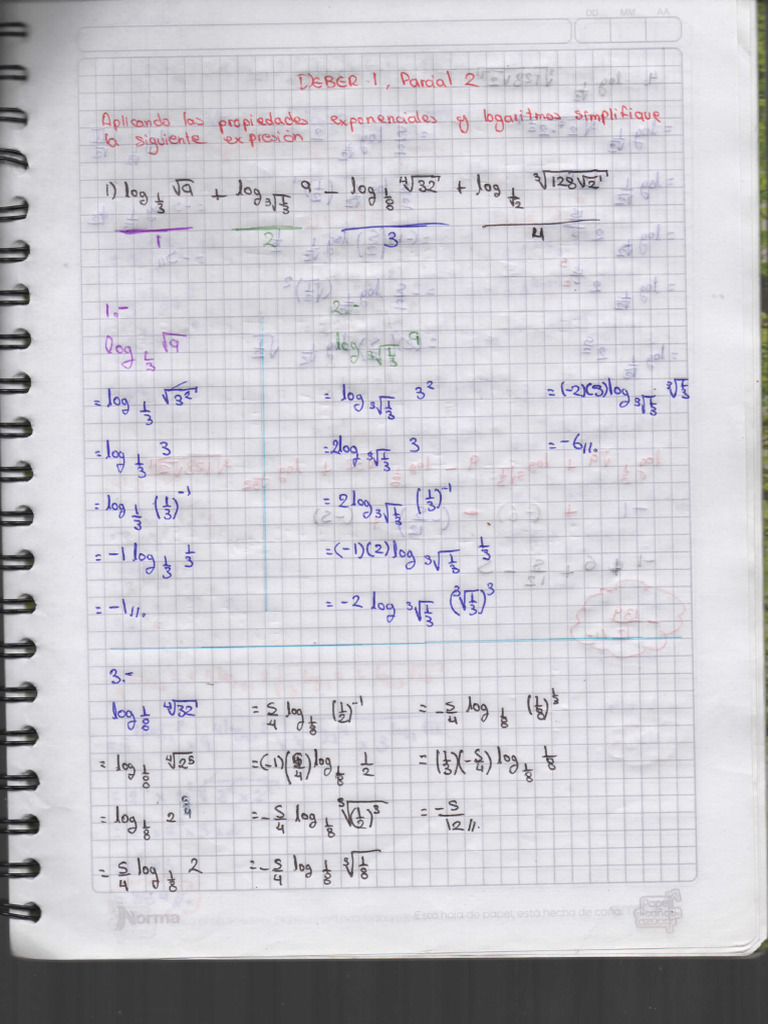 DD MM AA
DEBER 1, Parcial 2
Aplicando las propiedades exponenciales y logaritmos simplifique
la siguiente expresión
1) log_{1/3} √9 + log_{∛(1/3)} 9 - log_{1/8} ⁴√32 + log_{1/√2} ∛(128√2)
1 2 3 4
1.- 2.-
log_{1/3} √9 log_{∛(1/3)} 9
= log_{1/3} √(3²) = log_{∛(1/3)} 3² = (-2)(3) log_{∛(1/3)} ∛(1/3)
= log_{1/3} 3 = 2log_{∛(1/3)} 3 = -6//.
= log_{1/3} (1/3)^{-1} = 2 log_{∛(1/3)} (1/3)^{-1}
= -1 log_{1/3} 1/3 = (-1)(2) log_{∛(1/3)} 1/3
= -1//. = -2 log_{∛(1/3)} (∛(1/3))³
3.-
log_{1/8} ⁴√32 = 5/4 log_{1/8} (1/2)^{-1} = -5/4 log_{1/8} (1/8)^{1/3}
= log_{1/8} ⁴√(2⁵) = (-1)(5/4) log_{1/8} 1/2 = (1/3)(-5/4) log_{1/8} 1/8
= log_{1/8} 2^{5/4} = -5/4 log_{1/8} ∛((1/2)³) = -5/12//.
= 5/4 log_{1/8} 2 = -5/4 log_{1/8} ∛(1/8)
Norma
Esta hoja de papel, está hecha de caña